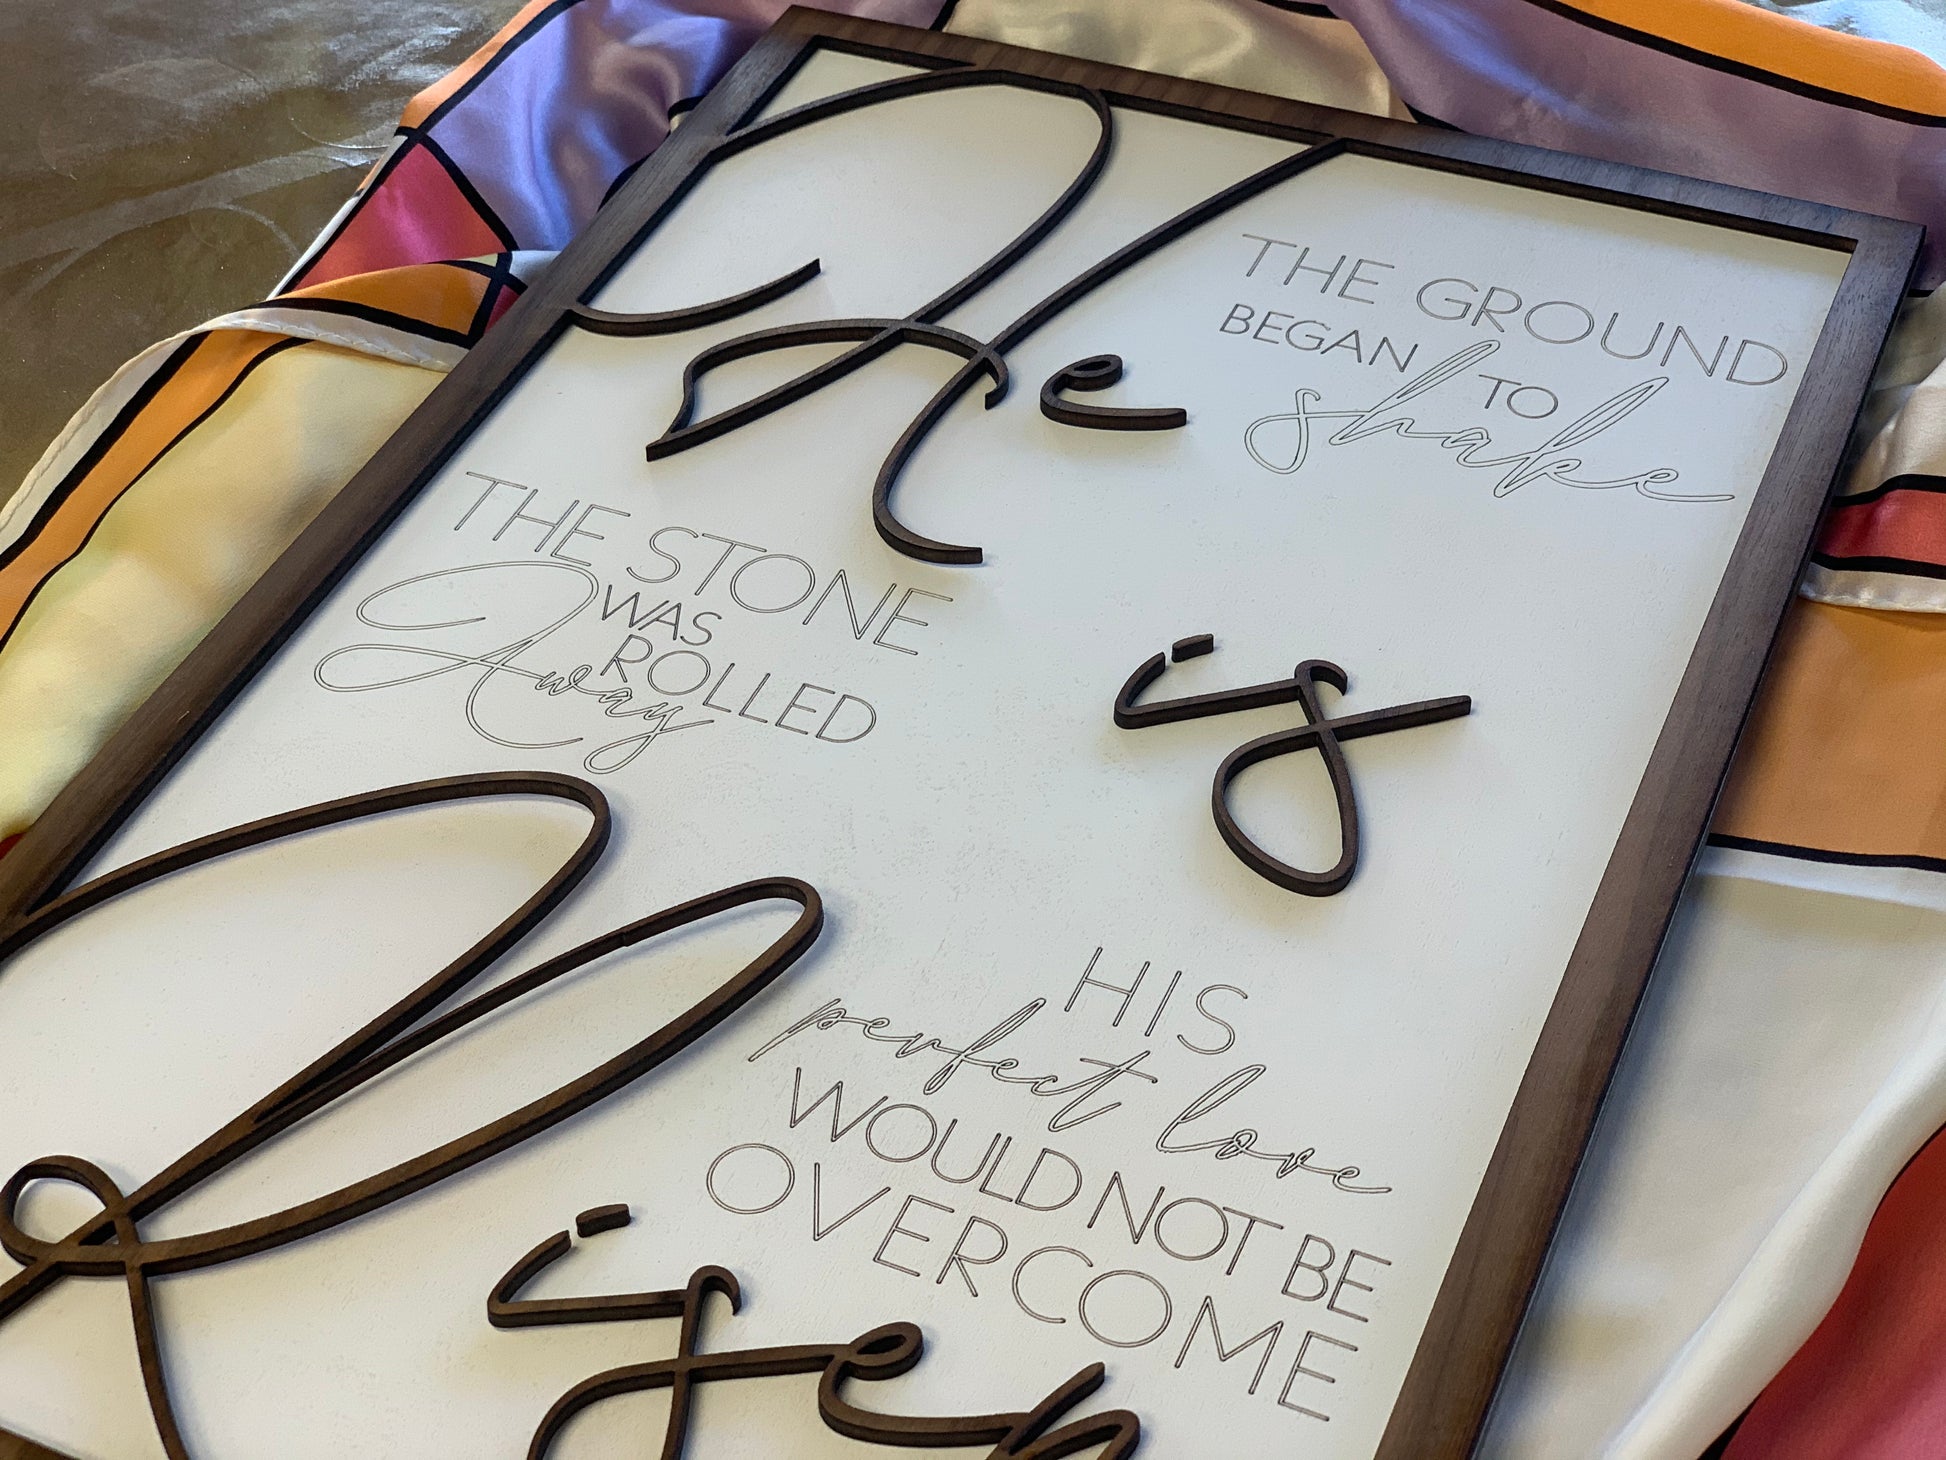 He
THE GROUND
BEGAN TO
shake
THE STONE
WAS
ROLLED
Away
is
HIS
perfect love
WOULD NOT BE
OVERCOME
Risen